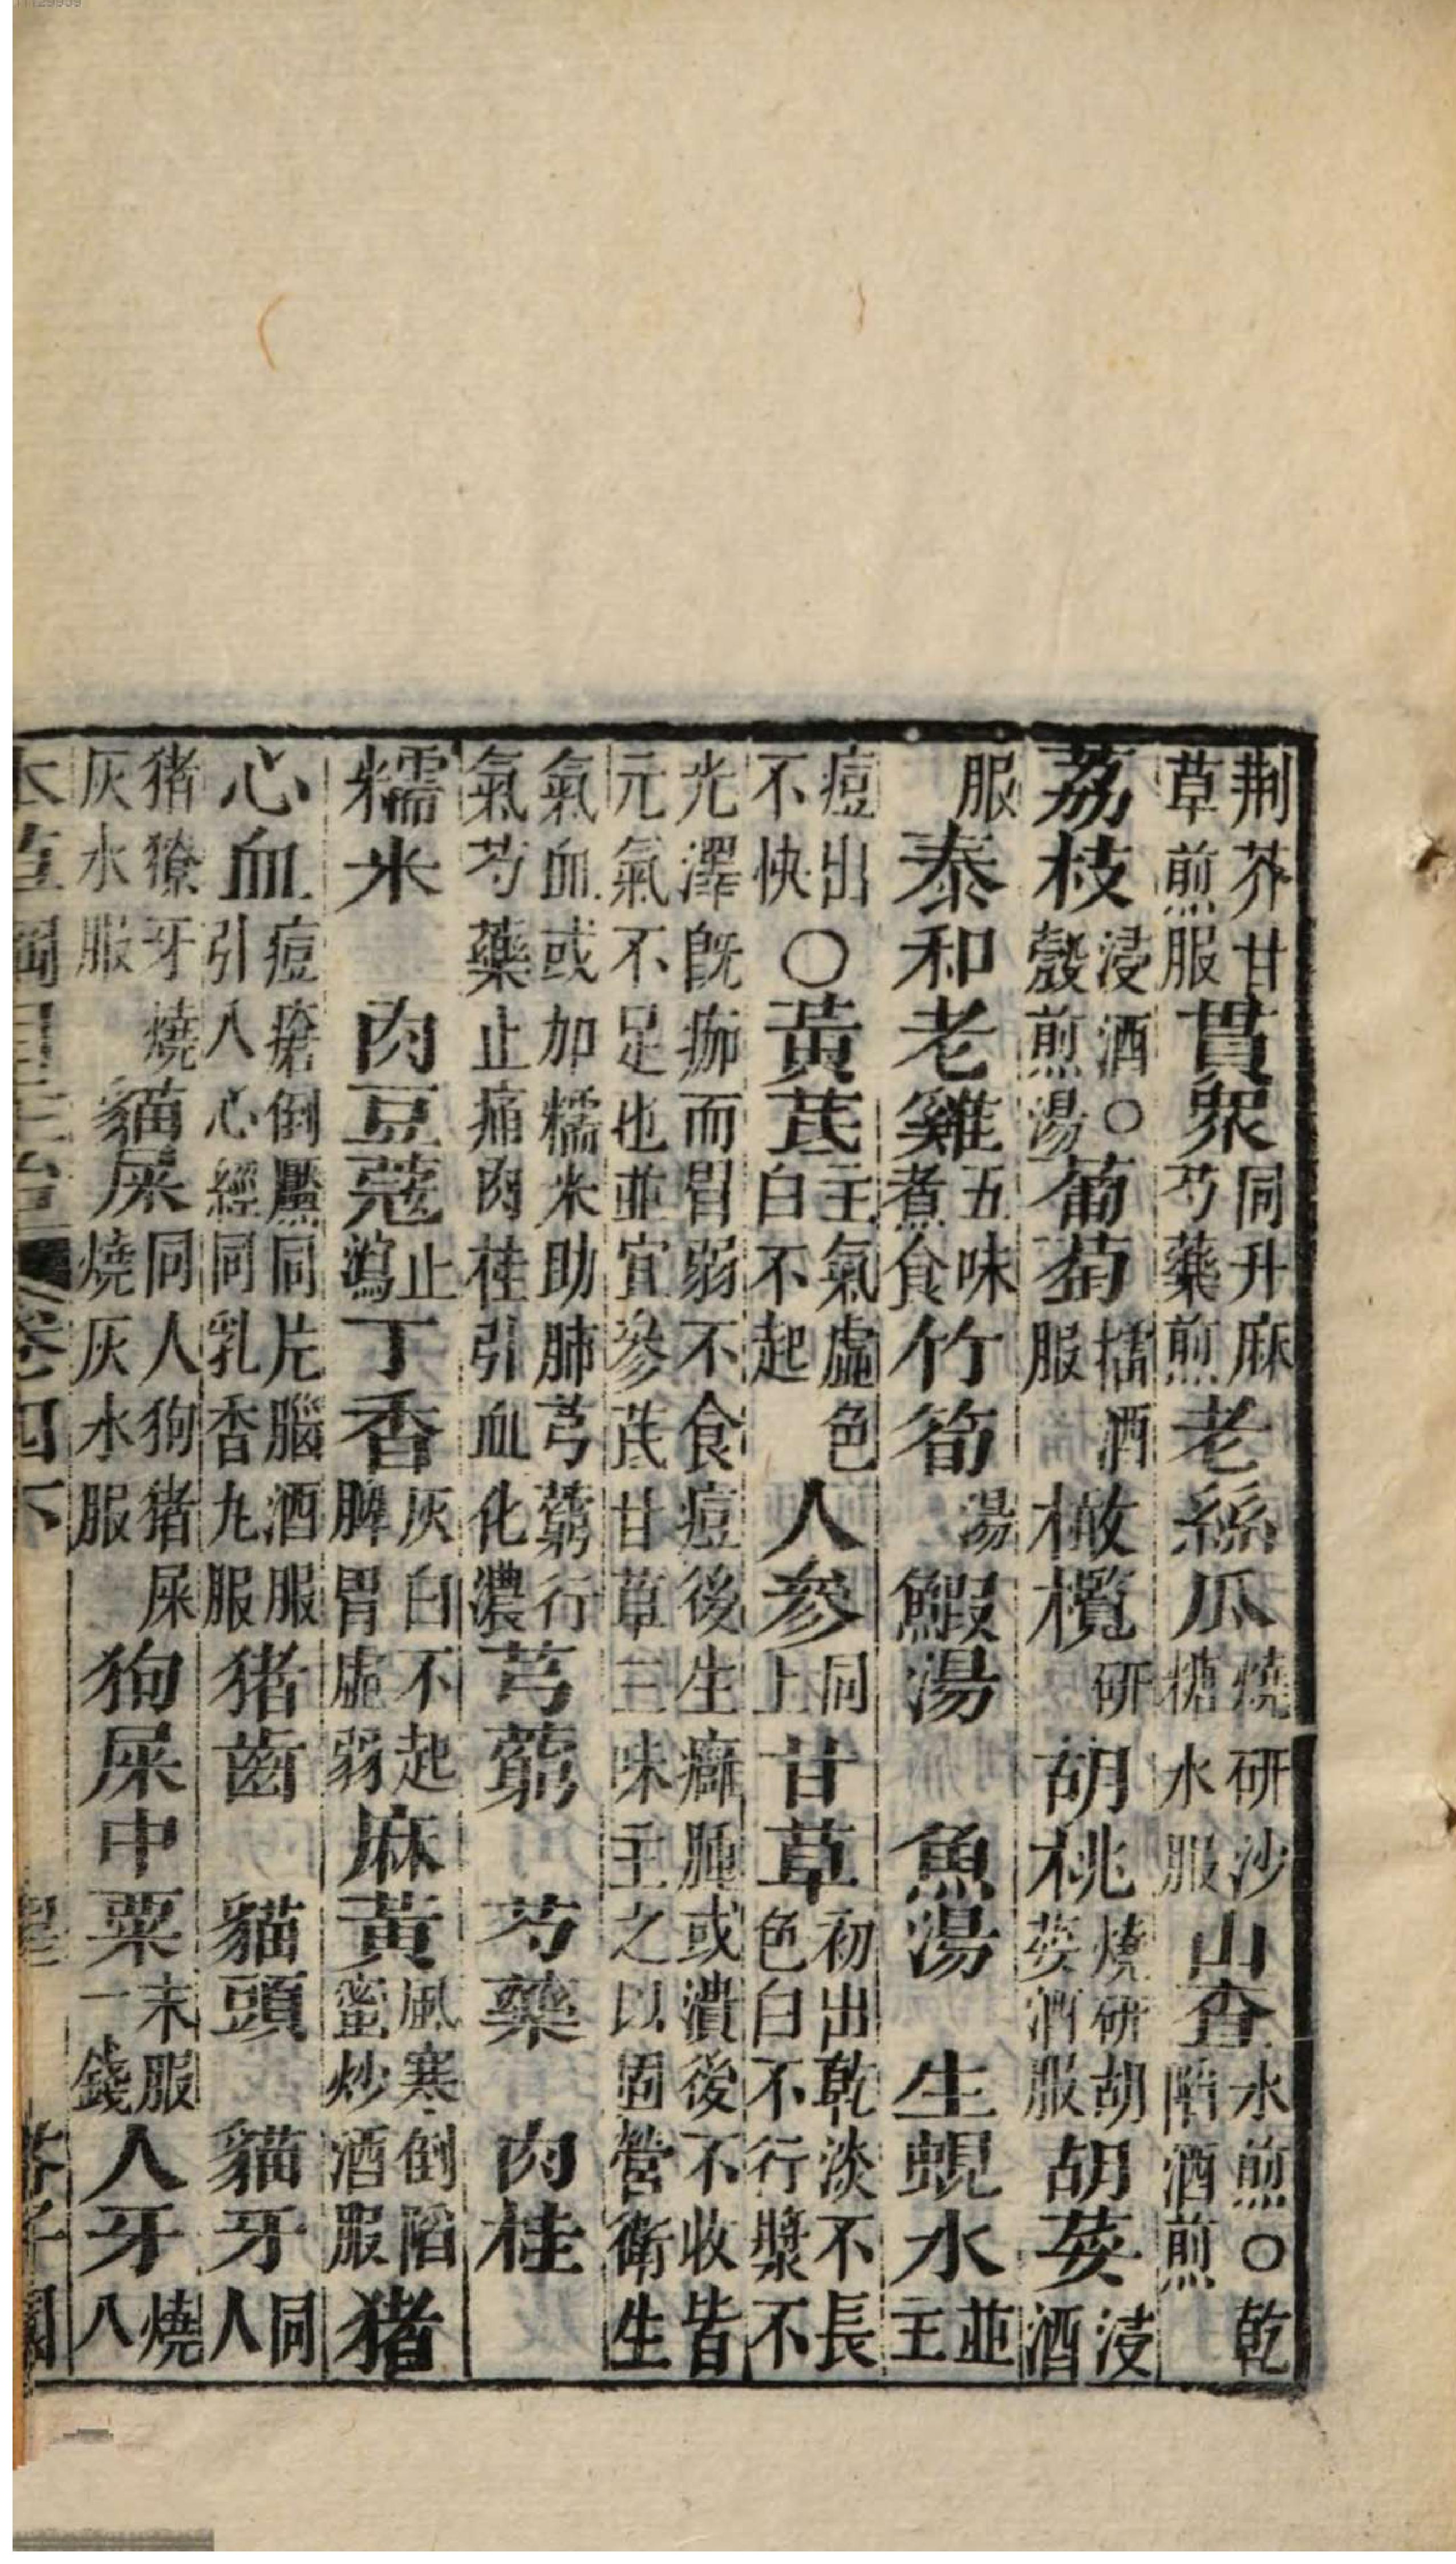 荆芥甘草煎服貫眾同升麻芍藥煎老絲瓜燒研沙糖水服山查水煎○乾陷酒煎
荔枝浸酒○殼煎湯葡萄擂酒服橄欖研胡桃燒研胡荽酒服胡荽浸酒
服泰和老雞五味煮食竹筍湯鰕湯魚湯生蜆水並主
痘出不快○黃芪主氣虛色白不起人參同上甘草初出乾淡不長色白不行漿不
光澤旣痂而胃弱不食痘後生癰腫或潰後不收皆元氣不足也並宜參芪甘草三味主之以固營衛生
氣血或加糯米助肺芎藭行氣芍藥止痛肉桂引血化濃芎藭芍藥肉桂
糯米肉豆蔻止瀉丁香灰白不起脾胃虛弱麻黃風寒倒陷蜜炒酒服猪
心血痘瘡倒黶同片腦酒服引入心經同乳香丸服猪齒貓頭貓牙同人
猪獠牙燒灰水服貓屎同人狗猪屎燒灰水服狗屎中粟末服一錢人牙燒八
卷四下